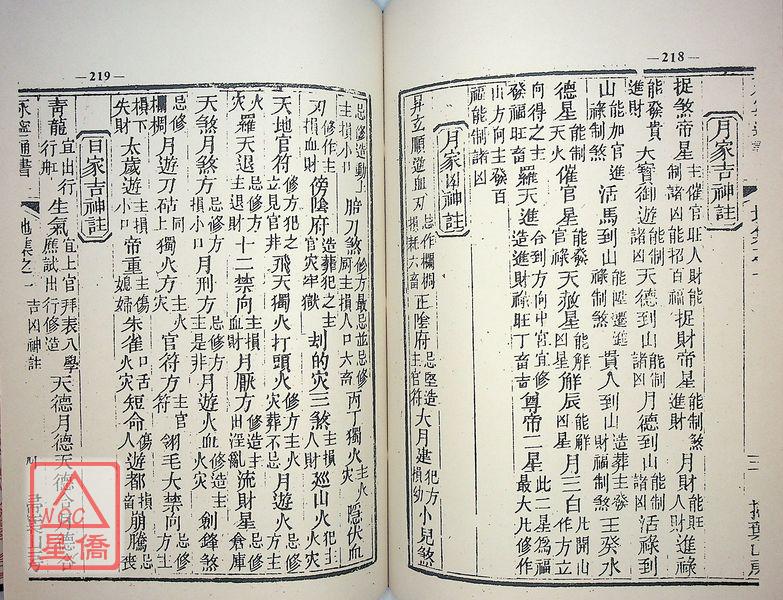 —218—
月家吉神註
捉煞帝星 主催官旺人財能制諸凶能招百福 捉財帝星 能制煞進財 月財 能旺人財進祿
能發貴進財 大寶御遊 能制諸凶 天德到山 能制諸凶 月德到山 能制諸凶 活祿到
山 能加官進祿制煞 活馬到山 能陞遷制煞 貴人到山 造葬主發財福制煞 壬癸水
德星 能制天火 催官星 能催官祿 天赦星 能解凶星 解辰 能解凶星 月三白 九開山作方立
向得之主發福旺畜 羅天進 合到方向中宮宜修造進財祿旺丁畜吉 尊帝二星 此二星為福最大凡修作
山方向主發百福能制諸凶
月家凶神註
昇立順逆血刃 忌作欄棚損耗六畜 正陰府 忌竪造主官符 大月建 犯方損幼 小兒煞
—219—
忌修造動土主損小口 胎刀煞 修方最忌並忌修厨主損人口六畜 丙丁獨火 忌修主火灾 隱伏血
刃 修作主損血財 傍陰府 造葬犯之主官灾牢獄 刦的灾三煞 主損人財 巡山火 犯主火灾
天地官符 修方犯之立見官非 飛天獨火打頭火 修方主火灾葬不忌 月遊火 修方主火
灾 羅天退 忌修方主退財 十二禁向 主損血財 月厭方 修造主出淫亂 流財星 忌修倉庫
天煞月煞方 忌修方損小口 月刑方 忌修方主是非 月遊火血 忌修造主火灾 劍鋒煞
忌修欄棚 月遊刀砧 同上 獨火方 主火灾 官符方 主官符 翎毛大禁向 忌修方主
損下失財 太歲遊 主損小口 帝重 主傷媳婦 朱雀 口舌火灾 短命 傷人 遊都 損畜 崩騰 忌喪
日家吉神註
青龍 宜出行行舡 生氣 宜上官應試出行修造 拜表入學 天德月德天德合月德合
地集之一
吉凶神註
WXC
星僑